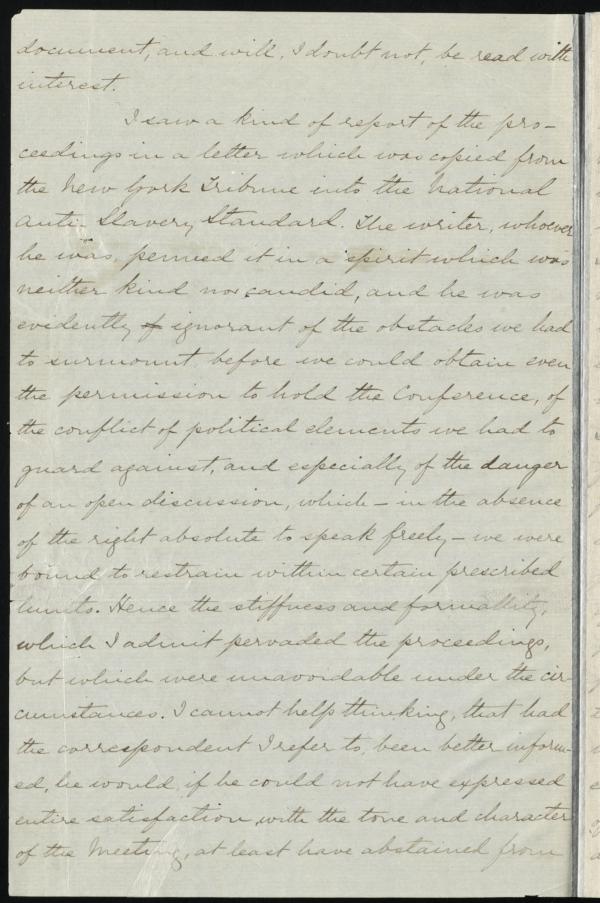 document, and will, I doubt not, be read with
interest.
I saw a kind of report of the pro-
ceedings in a letter which was copied from
the New York Tribune into the National
Anti-Slavery Standard. The writer, whoever
he was, penned it in a spirit which was
neither kind nor candid, and he was
evidently of ignorant of the obstacles we had
to surmount, before we could obtain even
the permission to hold the Conference, of
the conflict of political elements we had to
guard against, and especially of the danger
of an open discussion, which – in the absence
of the right absolute to speak freely – we were
bound to restrain within certain prescribed
limits. Hence the stiffness and formallity,
which I admit pervaded the proceedings,
but which were unavoidable under the cir-
cumstances. I cannot help thinking, that had
the correspondent I refer to, been better inform-
ed, he would, if he could not have expressed
entire satisfaction with the tone and character
of the Meeting, at least have abstained from